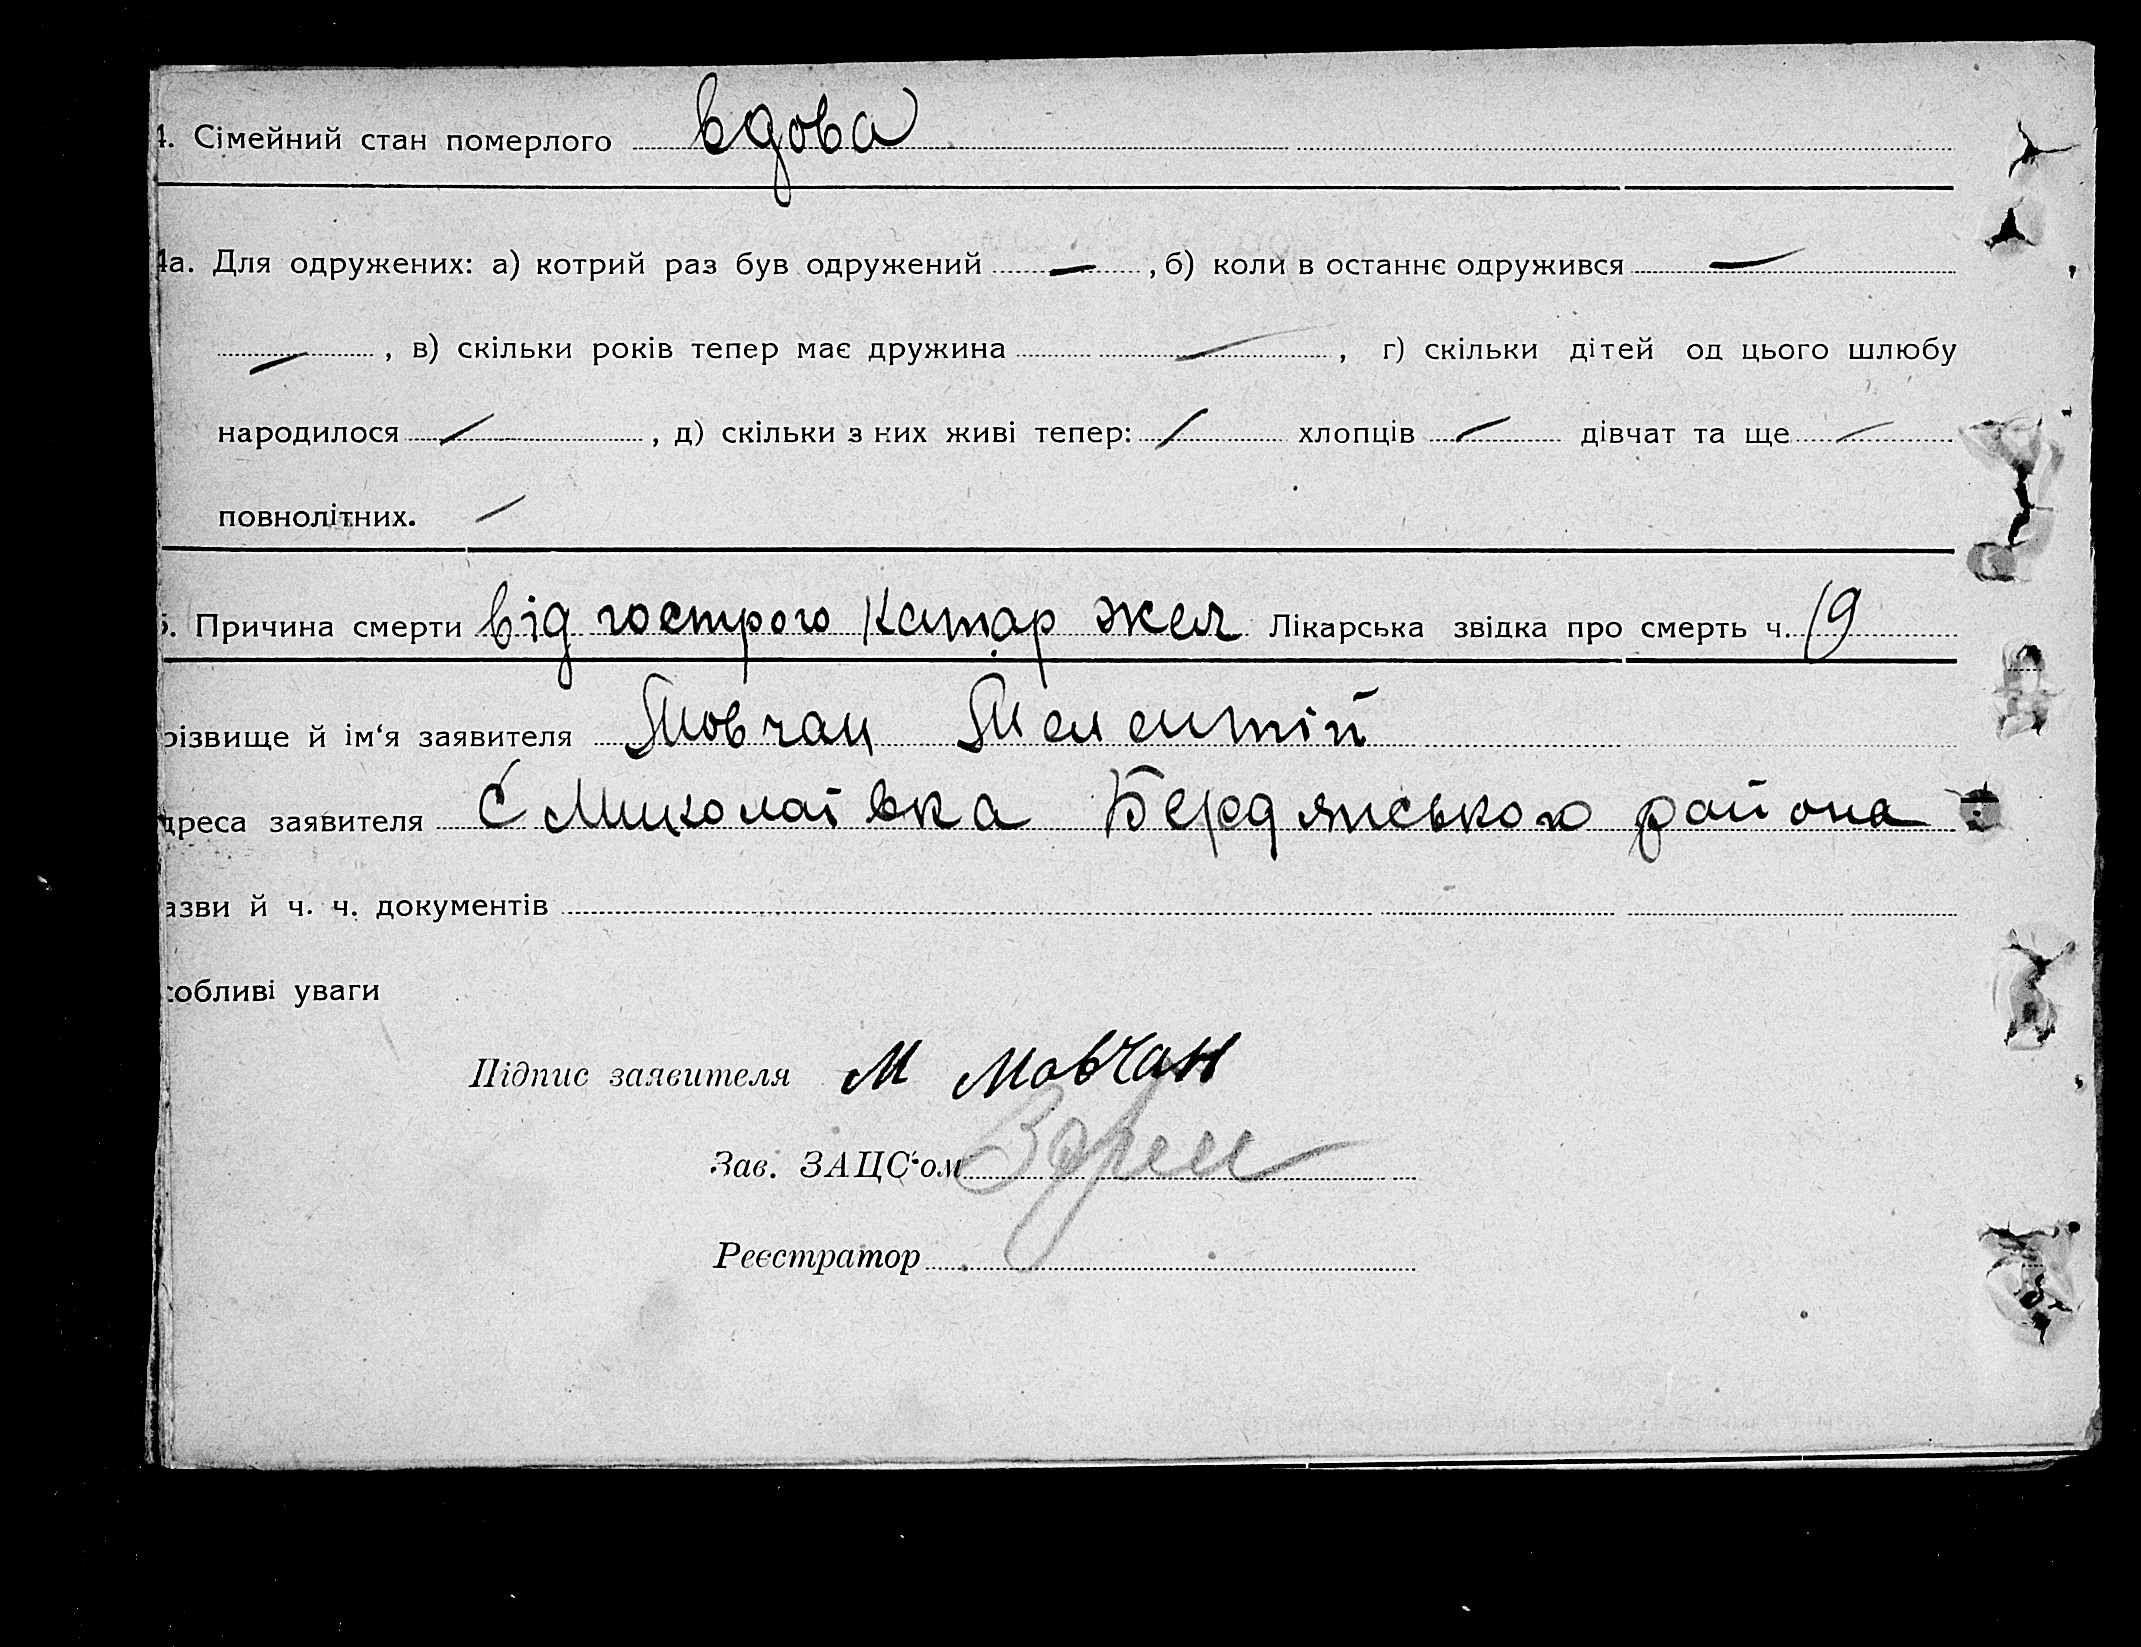 4. Сімейний стан померлого вдова
4а. Для одружених: а) котрий раз був одружений —, б) коли в останнє одружився —
—, в) скільки років тепер має дружина —, г) скільки дітей од цього шлюбу
народилося —, д) скільки з них живі тепер: — хлопців — дівчат та ще —
повнолітних. —
5. Причина смерти від гострого катар жел Лікарська звідка про смерть ч. 19
різвище й ім‘я заявителя Мовчан Мелентій
дреса заявителя С Миколаівка Бердянського района
азви й ч. ч. документів
собливі уваги
Підпис заявителя М Мовчан
Зав. ЗАЦС‘ом
Реєстратор